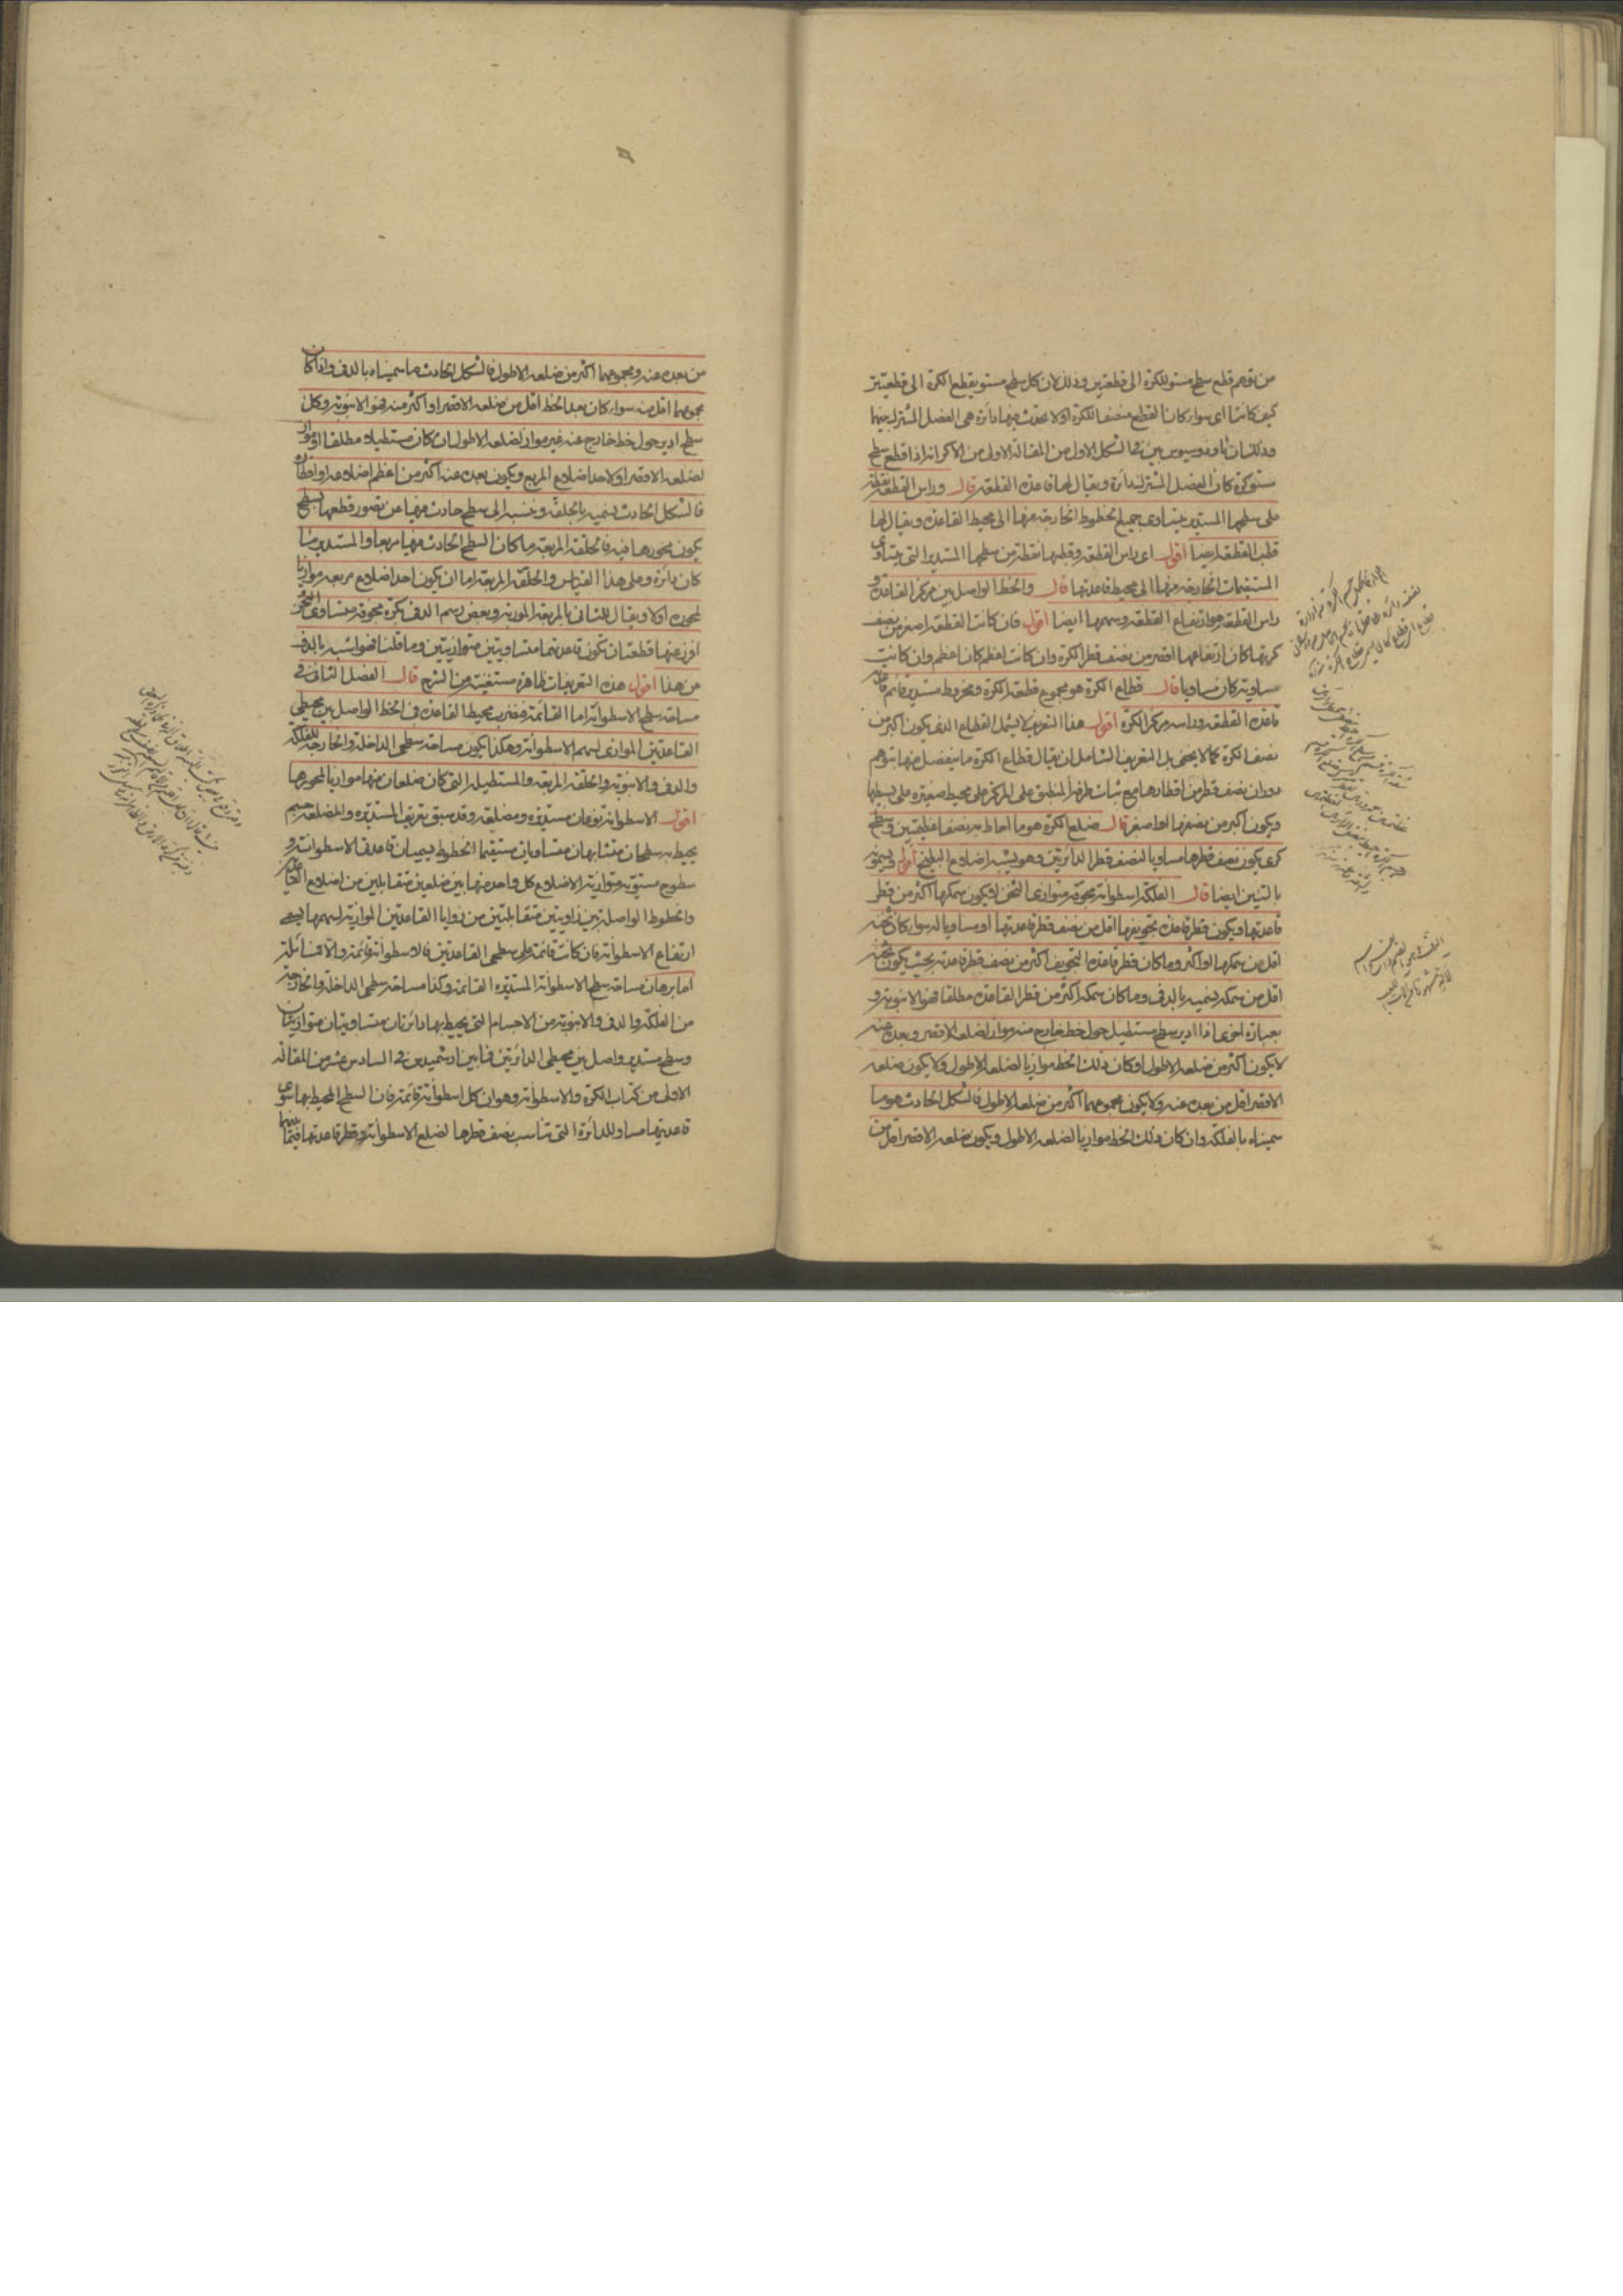 من توهم قطع سطح مستو للكرة الى قطعتين وذلك لان كل سطح مستو يقطع الكرة الى قطعتين
كيف كانتا اى سواء كان القطع منصفا للكرة اولا يحدث منها دائرة هى الفصل المشترك بينهما
وذلك لان ثاوذوسيوس بين فى الشكل الاول من المقالة الاولى من الاكر انه اذا قطع سطح
مستو كرة كان الفصل المشترك دائرة ويقال لها قاعدة القطعة قال وراس القطعة نقطة
على سطحها المستدير يتساوى جميع الخطوط الخارجة منها الى محيط القاعدة ويقال لها
قطب القطعة ايضا اقول اى راس القطعة وقطبها نقطة من سطحها المستدير التى يتساوى
المستقيمات الخارجة منها الى محيط قاعدتها قال والخط الواصل بين مركز القاعدة و
راس القطعة هو ارتفاع القطعة وسهمها ايضا اقول فان كانت القطعة اصغر من نصف
كرتها كان ارتفاعها اقصر من نصف قطر الكرة وان كانت اعظم كان اعظم وان كانت
مساوية كان مساويا قال قطاع الكرة هو مجموع قطعة الكرة ومخروط مستدير قائم قاعدته
قاعدة القطعة وراسه مركز الكرة اقول هذا التعريف لا يشمل القطاع الذى يكون اكبر من
نصف الكرة كما لا يخفى بل التعريف الشامل ان يقال قطاع الكرة ما ينفصل منها بتوهم
دوران نصف قطر من اقطارها مع ثبات طرفه المنطبق على المركز على محيط صغيرة على بسيطها
ويكون اكبر من نصفها او اصغر قال ضلع الكرة هو ما احاط به نصفا عظيمتين وسطح
كرى يكون نصف قطرها مساويا لنصف قطر الدائرتين وهو يشبه اضلاع البطيخ اقول ويسمونه
بالتين ايضا قال الفلكة اسطوانة مجوفة متوازى الثخن لا يكون سمكها اكثر من قطر
قاعدتها ويكون قطر قاعدة تجويفها اقل من نصف قطر قاعدتها او مساويا له سواء كان ثخنه
اقل من سمكها او اكثر وما كان قطر قاعدة التجويف اكثر من نصف قطر قاعدته بحيث يكون ثخنه
اقل من سمكه نسميه بالدف وما كان سمكه اكثر من قطر القاعدة مطلقا فهو الانبوبة و
بعبارة اخرى اذا ادير سطح مستطيل حول خط خارج عنه مواز لضلعه الاقصر وبعده عنه
لا يكون اكثر من ضلعه الاطول او كان ذلك الخط موازيا لضلعه الاطول ولا يكون ضلعه
الاقصر اقل من بعده عنه ولا يكون مجموعهما اكثر من ضلعه الاطول فالشكل الحادث هو ما
سميناه بالفلكة وان كان ذلك الخط موازيا لضلعه الاطول ويكون ضلعه الاقصر اقل من
من بعده عنه ومجموعهما اكثر من ضلعه الاطول فالشكل الحادث ما سميناه بالدف واذا كان
مجموعهما اقل منه سواء كان بعد الخط اقل من ضلعه الاقصر او اكثر منه فهو الانبوبة وكل
سطح ادير حول خط خارج عنه غير مواز لضلعه الاطول ان كان مستطيلا مطلقا او مواز
لضلعه الاقصر او لاحد اضلاع المربع ويكون بعده عنه اكثر من اعظم اضلاعه او اقطاره
فالشكل الحادث نسميه بالحلقة وننسبه الى سطح حادث فيها عن تصور قطعها بسطح
يكون محورها فيه فالحلقة المربعة ما كان السطح الحادث فيها مربعا والمستديرة ما
كان دائرة وعلى هذا القياس والحلقة المربعة اما ان يكون احد اضلاع مربعه موازيا
لمحوره اولا ويقال للثانى بالمربعة المورية وبعض رسم الدف بكرة مجوفة متساوى الثخن
افرز منها قطعتان تكون قاعدتهما متساويتين متوازيتين وما قلنا فهو اشبه بالدف
من هذا اقول هذه التعريفات ظاهرة مستغنية من الشرح قال الفصل الثانى فى
مساحة سطح الاسطوانة اما القائمة فنضرب محيط القاعدة فى الخط الواصل بين محيطى
القاعدتين الموازى لسهم الاسطوانة وهكذا يكون مساحة سطحى الداخلة والخارجة للفلكة
والدف والانبوبة والحلقة المربعة والمستطيلة التى كان ضلعان منها موازيا لمحورها
اقول الاسطوانة نوعان مستديرة ومضلعة وقد سبق تعريف المستديرة والمضلعة جسم
يحيط به سطحان متشابهان متساويان مستقيما الخطوط يسميان قاعدتى الاسطوانة و
سطوح مستوية متوازية الاضلاع كل واحد منها بين ضلعين متقابلين من اضلاع القاعدتين
والخطوط الواصلة بين زاويتين متقابلتين من زوايا القاعدتين الموازية لسهمها يسمى
ارتفاع الاسطوانة فان كانت قائمة على سطحى القاعدتين فالاسطوانة قائمة والا فمائلة
اما برهان مساحة سطح الاسطوانة المستديرة القائمة وكذا مساحة سطحى الداخلة والخارجة
من الفلكة والدف والانبوبة من الاجسام التى يحيط بها دائرتان متساويتان متوازيتان
وسطح مستدير واصل بين محيطى الدائرتين فما بين ارشميدس فى السادس عشر من المقالة
الاولى من كتاب الكرة والاسطوانة وهو ان كل اسطوانة قائمة فان السطح المحيط بها سوى
قاعدتيها مساو للدائرة التى تناسب نصف قطرها لضلع الاسطوانة وقطر قاعدتها فيما بينهما